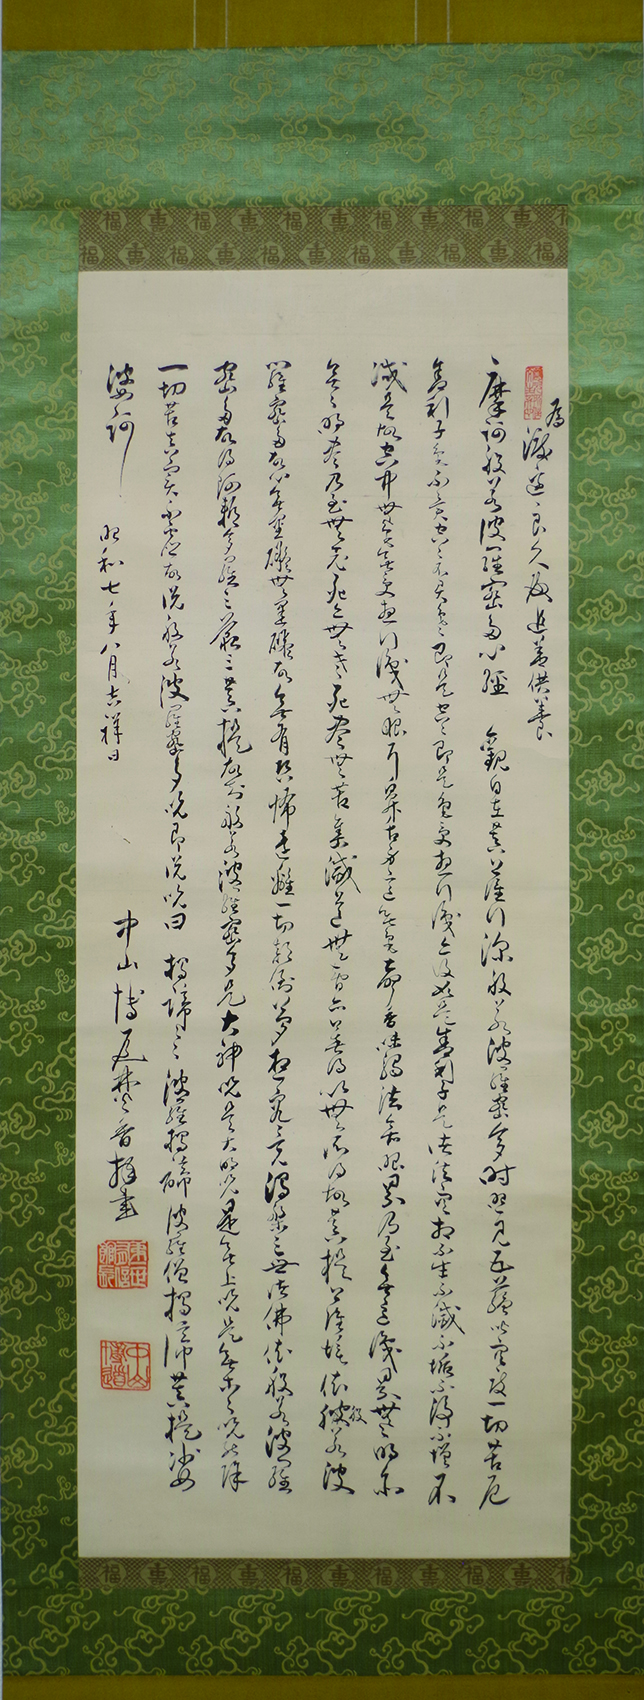 為 良久殿追善供養
摩訶般若波羅蜜多心經 觀自在菩薩行深般若波羅蜜多時照見五蘊皆空度一切苦厄
舍利子色不異空空不異色色即是空空即是色受想行識亦復如是舍利子是諸法空相不生不滅不垢不淨不增不
減是故空中無色無受想行識無眼耳鼻舌身意無色聲香味觸法無眼界乃至無意識界無無明亦
無無明盡乃至無老死亦無老死盡無苦集滅道無智亦無得以無所得故菩提薩埵依般若波
羅蜜多故心無罣礙無罣礙故無有恐怖遠離一切顛倒夢想究竟涅槃三世諸佛依般若波羅
蜜多故得阿耨多羅三藐三菩提故知般若波羅蜜多是大神咒是大明咒是無上咒是無等々咒能除
一切苦真實不虛故說般若波羅蜜多咒即說咒曰 揭諦々々 波羅揭諦 波羅僧揭諦 菩提娑
婆訶
昭和七年八月吉祥日
中山博道焚香拝書
中山博道